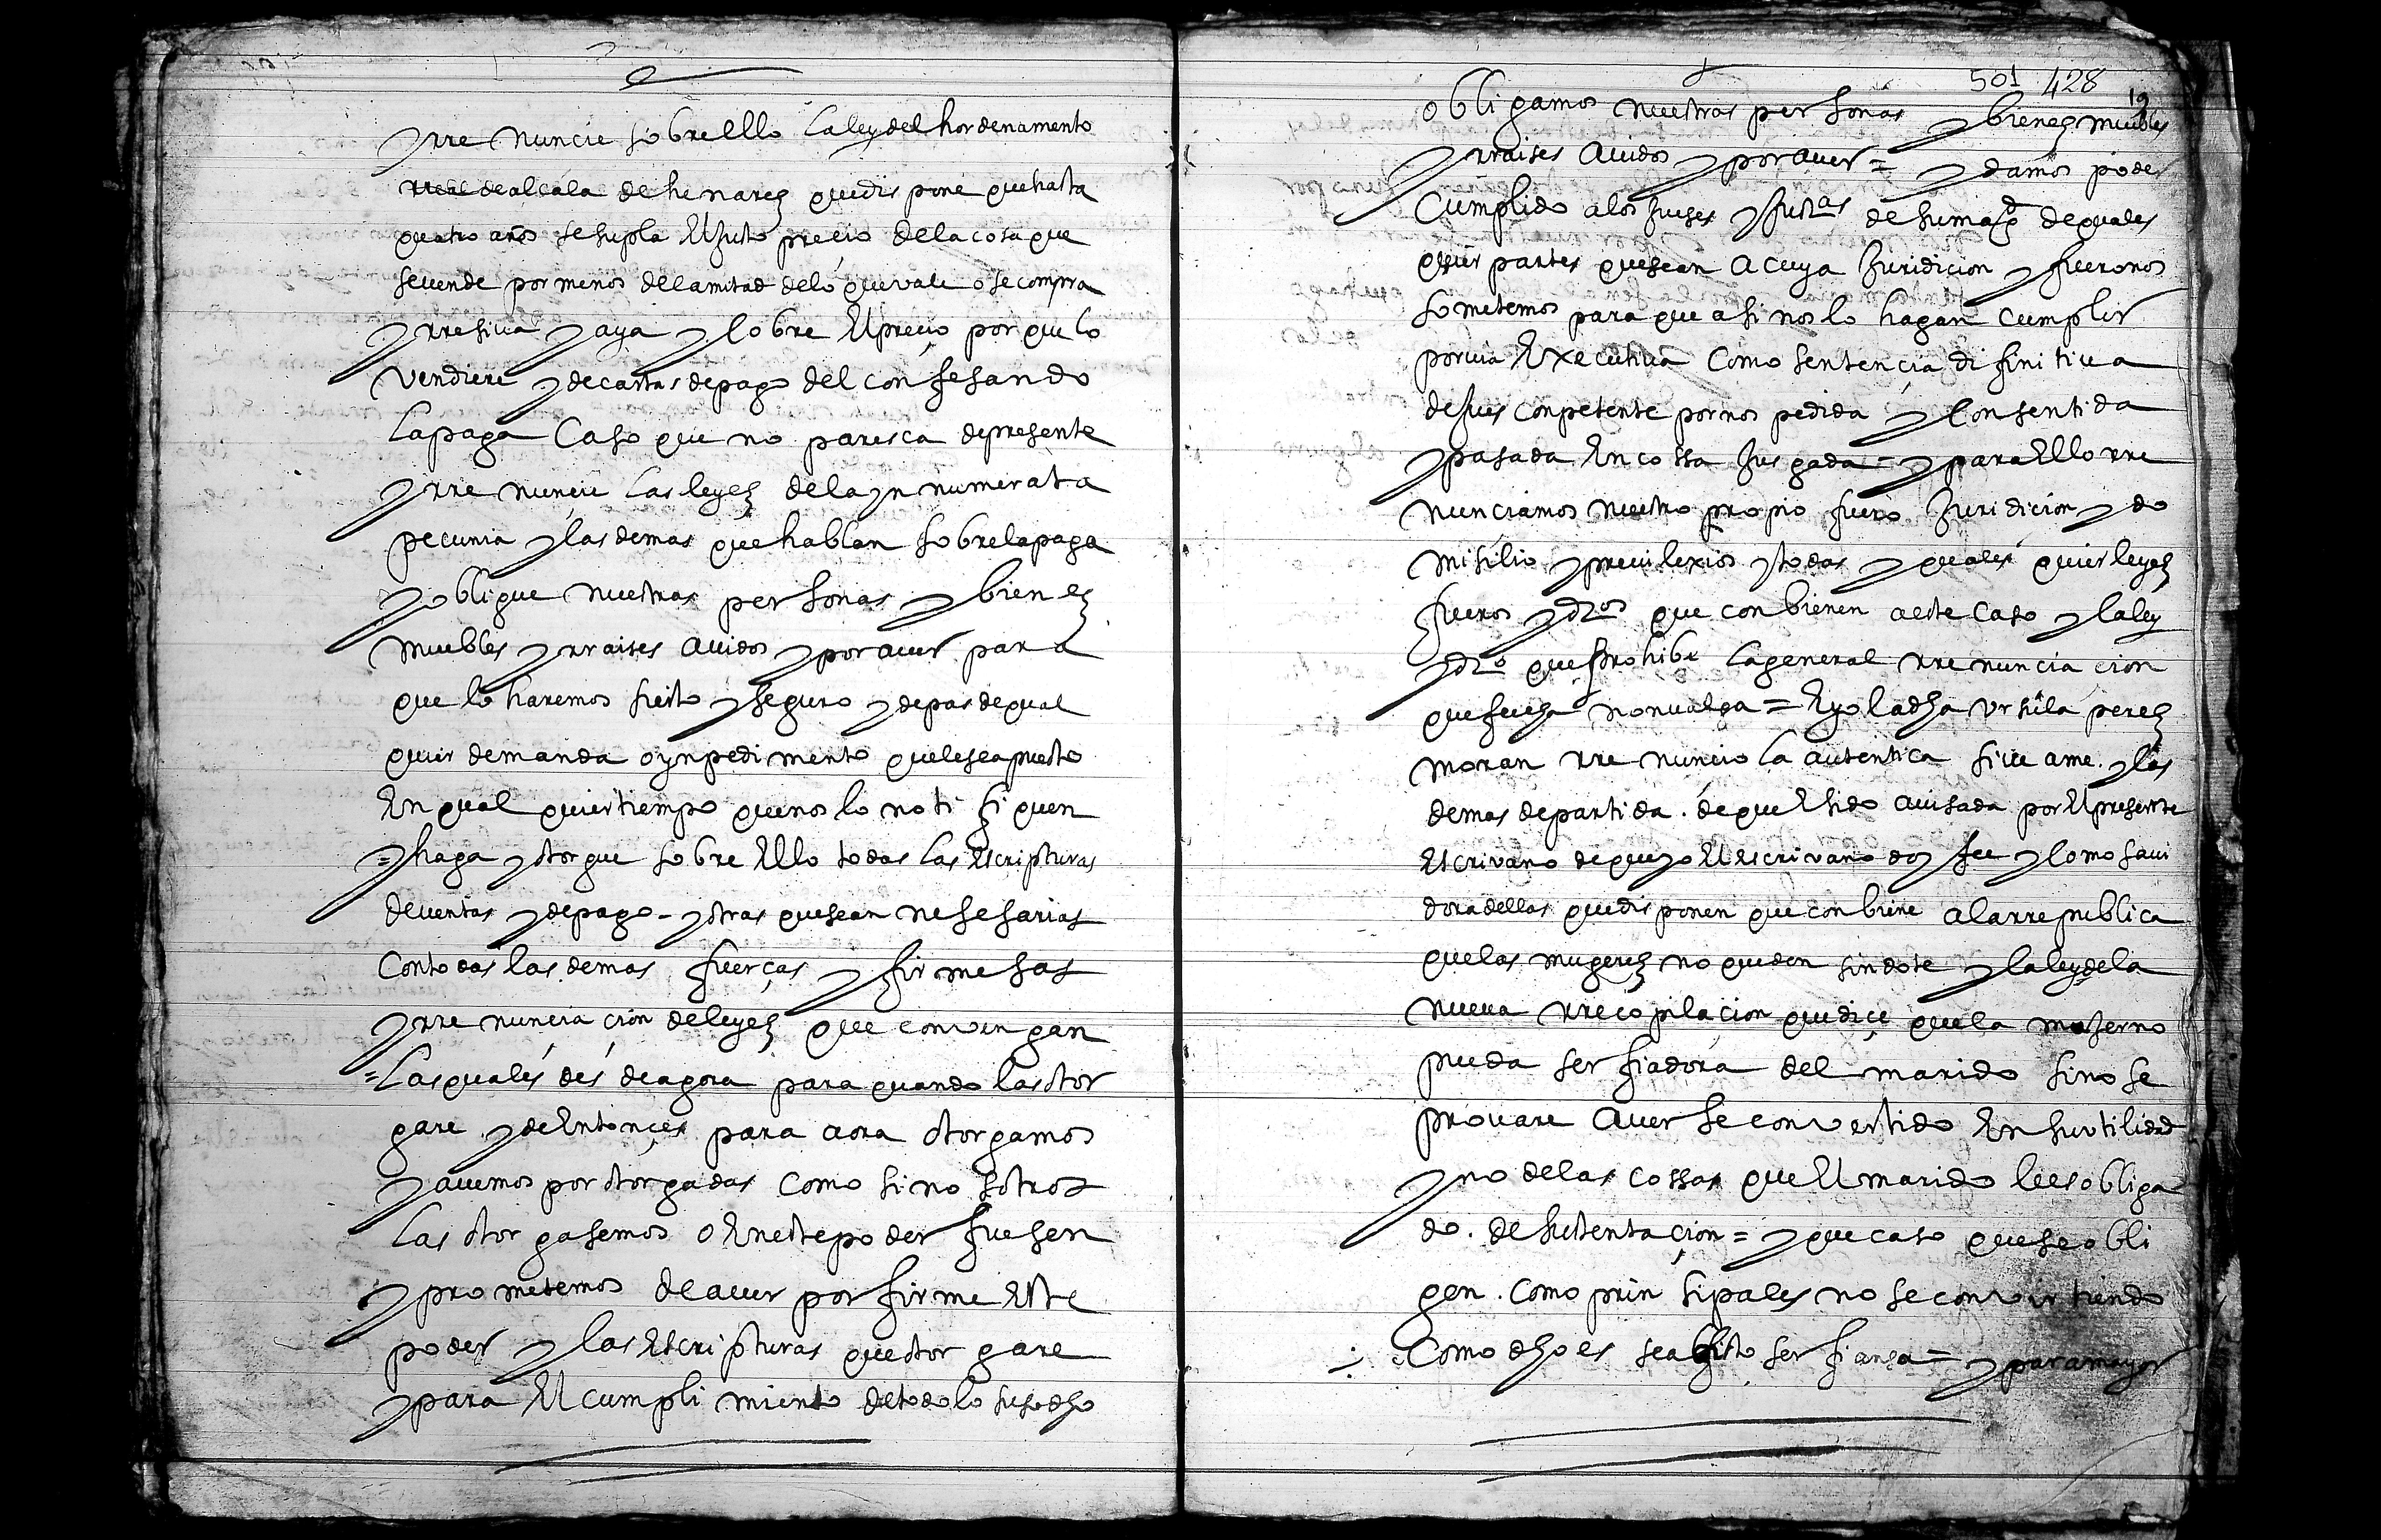 yrre nuncie sobrelllo la ley del hordenamento
rreal de alcala de henares que dispone que hasta
quatro años se supla El justo precio de la cosa que
se uende por menos de la mitad de lo que vale o se compra
y rresiua y aya y cobre El precio por que lo
vendiere y de cartas de pago del confesando
la paga Caso que no paresca de presente
y rre nuncie las leyes de la yn numerata
pecunia y las demas que hablan sobre la paga
y obligue nuestras personas y bienes
muebles y rraises auidos y por auer para
que lo haremos sierto y seguro y de pas de qual
quier demanda o ynpedimento que le sea puesto
En qual quier tiempo que nos lo noti fi quen
= y haga y otorgue sobre Ello todas las Escripturas
de uentas y de pago - y otras que sean nesesarias
Con todas las demas fuerças y firmesas
y rre nuncia cion de leyes que convengan
= las quales des de agora para quando las otor
gare y de Entonçes para aora otorgamos
y auemos por otorgadas como si nosotros
las otorgasemos o En este poder fuesen
y prometemos de auer por firme Este
poder y las Escripturas que otor gare
y para El cumpli miento de todo lo susodho
501 428
19
obligamos nuestras personas y bienes muebles
y rraises auidos y por auer = y damos poder
Cumplido a los Jueses y Justas de su magd de quales
quier partes que sean a cuya Juridicion y fuero nos
sometemos para que a si nos lo hagan cumplir
por uia Executiua Como sentencia di finitiua
de Jues conpetente por nos pedida y consentida
y pasada En cossa Jus gada = y para Ello rre
nunciamos nuestro propio fuero Juridicion y do
misilio y preuilexios y todas y quales quier leyes
fueros y dros que conbienen a este Caso y la ley
y dro que prohibe la general rre nuncia cion
que fecha non valga = E yo la dha vrsula peres
moran rre nuncio la autentica siue a me. y las
demas de partida. de que E sido auisada por El presente
Escrivano de que yo El escrivano doy fee y como saui
dora dellas que disponen que conbiene a la rrepublica
que las mugeres no queden sin dote y la ley de la
nueua rrecopilacion que diçe que la muJer no
pueda ser fiadora del marido si no se
prouare auer se convertido En su utilidad
y no de las cossas que El marido le es obliga
do. de sustentaçion = y que caso que se obli
gen. como prin sipales no se convir tiendo
Como dho es sea bisto ser fiansa = y para mayor